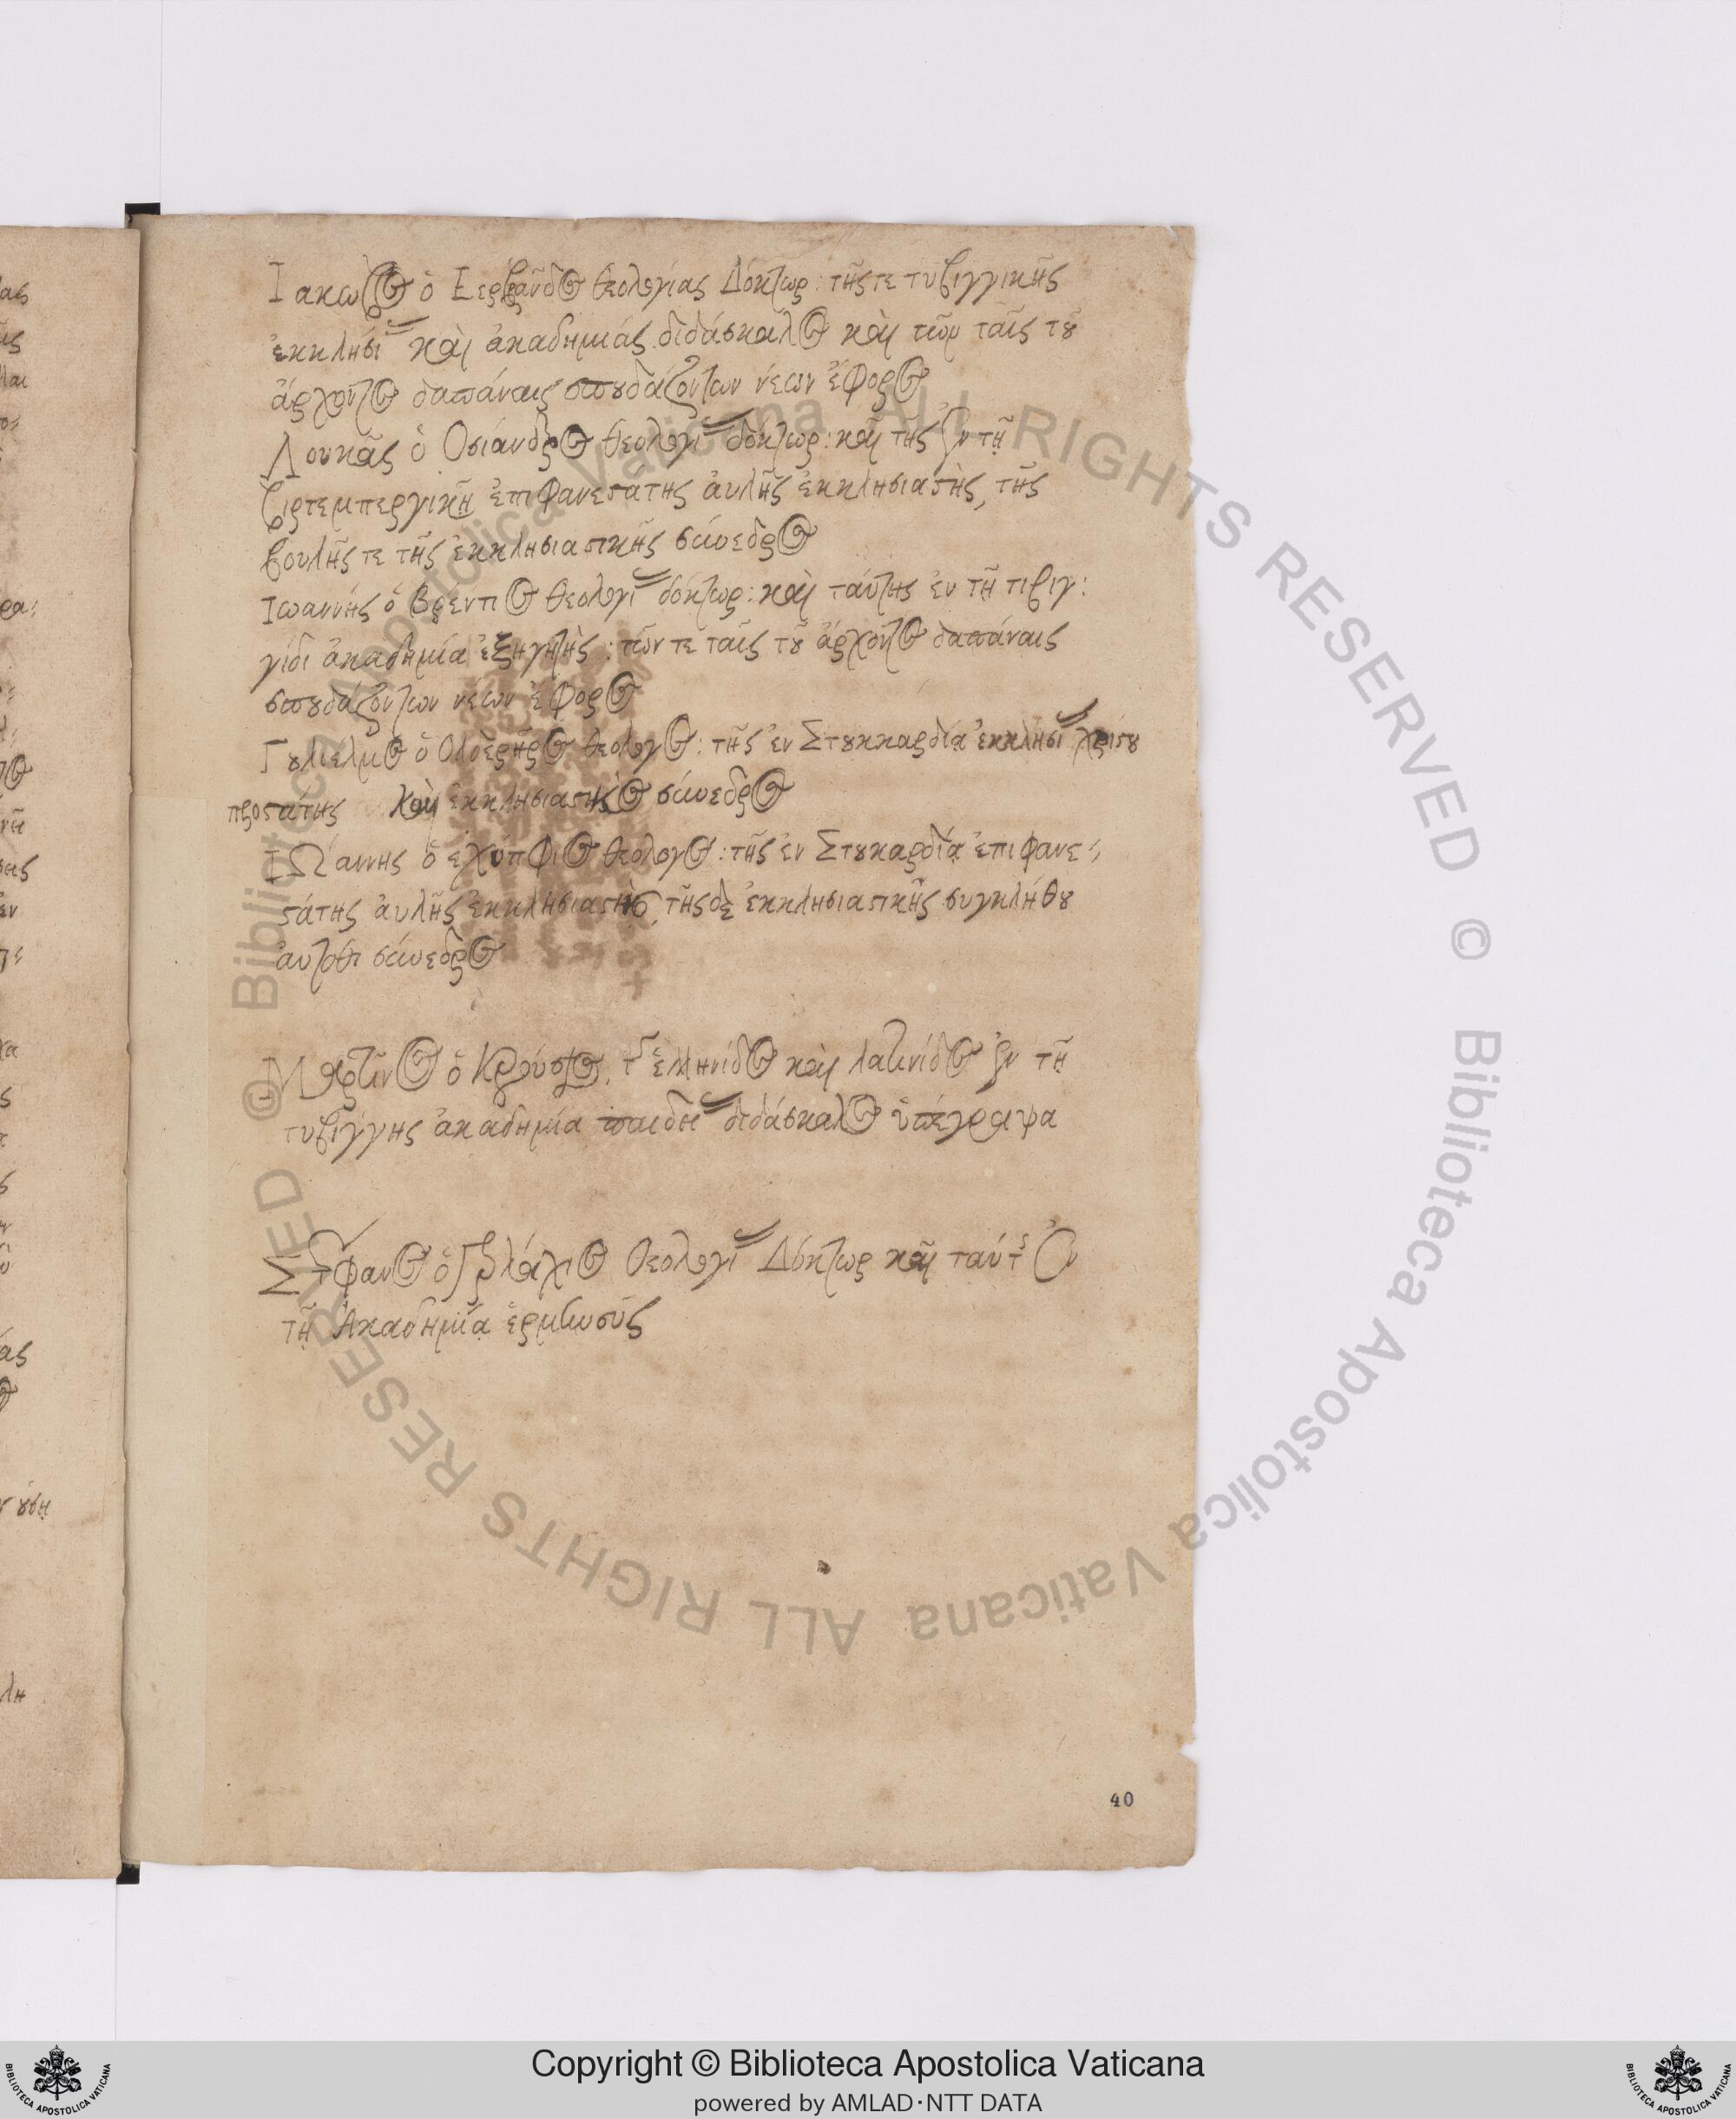 Ἰακωβος ὁ Εερβρᾶνδος θεολογίας Δόκτωρ: τῆς τε τυβιγγικῆς
ἐκκλησίας καὶ ἀκαδημιάς διδάσκαλος καὶ τῶν ταῖς τοῦ
ἄρχοντος δαπάναις σπουδάζοντων νέων ἔφορος
Λουκᾶς ὁ Οσίανδρος θεολογίας δόκτωρ: καὶ τῆς ἐν τῇ
βιρτεμπεργικῇ ἐπιφανεστατης ἀυλῆς ἐκκλησιαστὴς, τῆς
βουλῆς τε τῆς ἐκκλησιαστικῆς σύνεδρος
Ἰωαννής ὁ βρεντιος θεολογίας δόκτωρ: καὶ τάυτης ἐν τῇ τιβιγ:
γίδι ἀκαδημία ἐξηγητὴς: τῶν τε ταῖς τοῦ ἄρχοντος δαπάναις
σπουδάζοντων νέων ἔφορος
Γουλιέλμος ὁ Ολδερῆρος θεολογος: τῆς ἐν Στουκκαρδίᾳ ἐκκλησίας χριστου
προστατης καὶ ἐκκλησιαστικὸς σύνεδρος
ΙΩάννης ὁ εχύπφιος θεολογος: τῆς ἐν Στουκαρδίᾳ ἐπιφανε:
στάτης ἀυλῆς ἐκκλησιαστὴς, τῆς δὲ ἐκκλησιαστικῆς συγκλήθου
ἀυτόθι σύνεδρος
Μαρτῖνος ὁ Κρούσιος, τῆς ἑλληνίδος καὶ λατινίδος ἐν τῇ
τυβίγγης ἀκαδημία παιδείας διδάσκαλος ὑπέγραψα
Στέφανος ὁ Γερλάχιος θεολογίας Δόκτωρ καὶ ταύτης ἐν
τῇ Ἀκαδημίᾳ ἑρμηνεύς
40
Copyright © Biblioteca Apostolica Vaticana
powered by AMLAD·NTT DATA
© Biblioteca Apostolica Vaticana ALL RIGHTS RESERVED
© Biblioteca Apostolica Vaticana ALL RIGHTS RESERVED
BIBLIOTECA APOSTOLICA VATICANA
BIBLIOTECA APOSTOLICA VATICANA